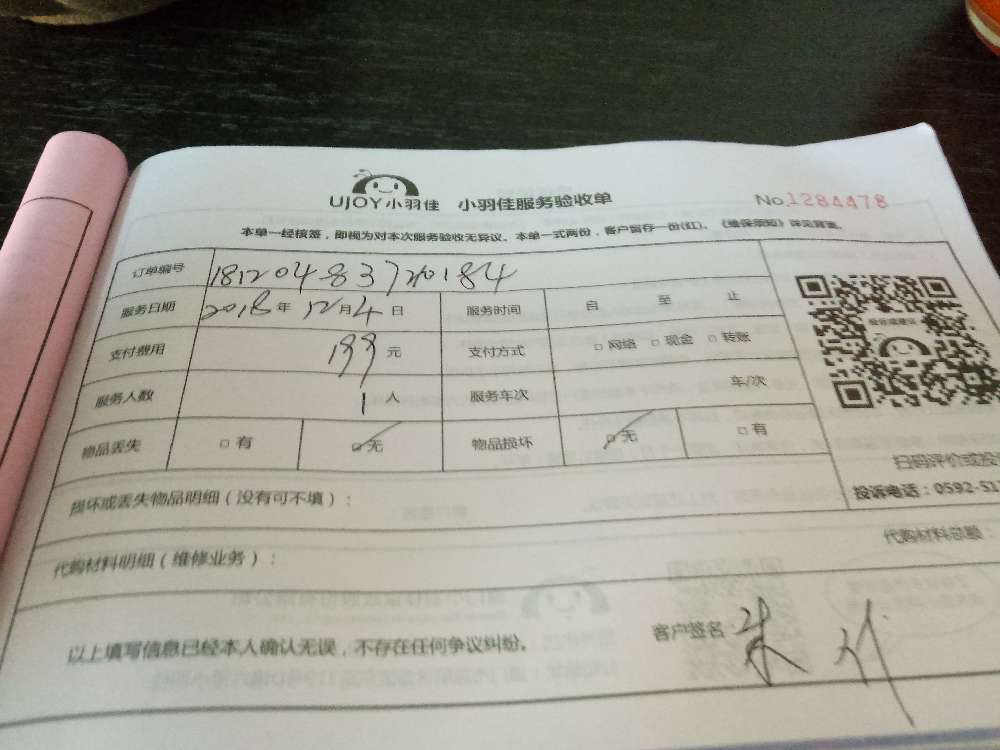 UJOY小羽佳 小羽佳服务验收单 No.1284478
本单一经核签，即视为对本次服务验收无异议。本单一式两份，客户留存一份(红)。《维保须知》详见背面。
订单编号 18120483720184
服务日期 2018年 12月4日 服务时间 自 至 止
支付费用 199元 支付方式 □网络 □现金 □转账
服务人数 1人 服务车次 车/次
物品丢失 □有 □无 物品损坏 □无 □有
扫码评价或投
损坏或丢失物品明细（没有可不填）：
投诉电话：0592-51
代购材料明细（维修业务）： 代购材料总额：
以上填写信息已经本人确认无误，不存在任何争议纠纷。 客户签名：朱